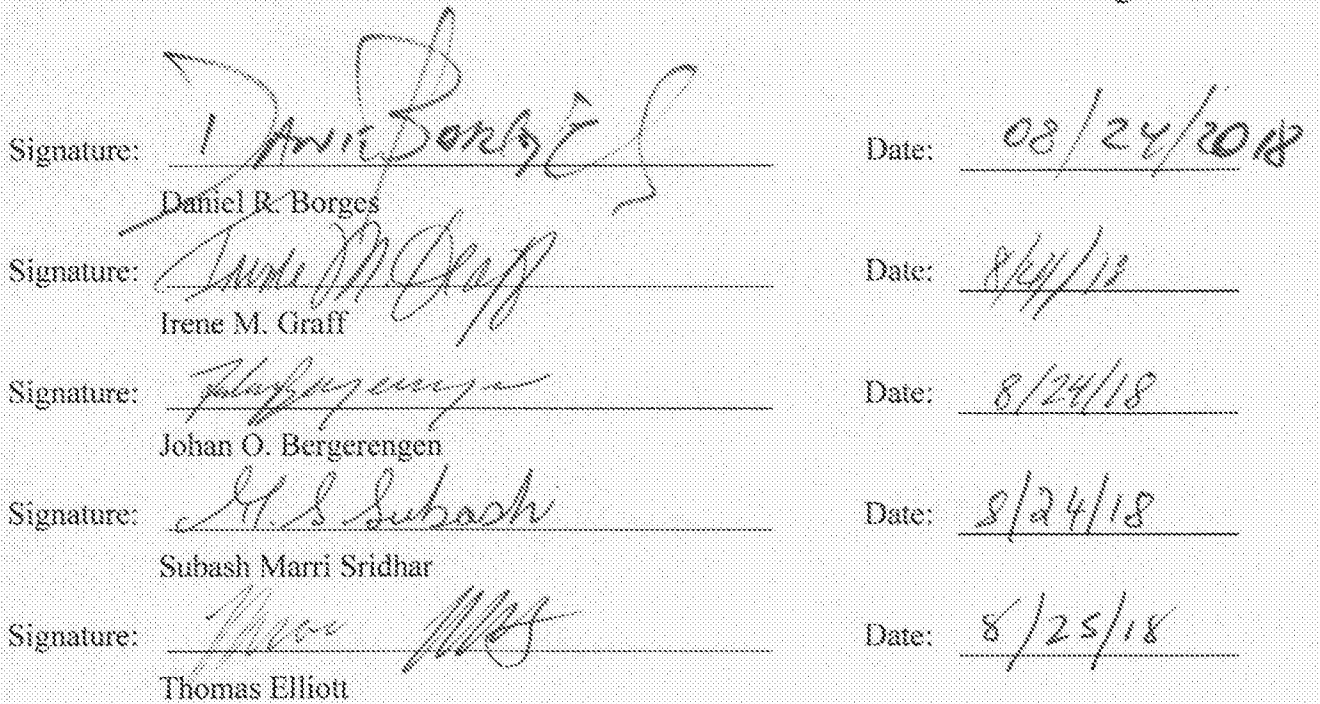 Signature: Date: 08/24/2018
Daniel R. Borges
Signature: Irene M. Graff Date: 8/24/18
Irene M. Graff
Signature: Date: 8/24/18
Johan O. Bergerengen
Signature: M. S Subash Date: 8/24/18
Subash Marri Sridhar
Signature: Date: 8/25/18
Thomas Elliott